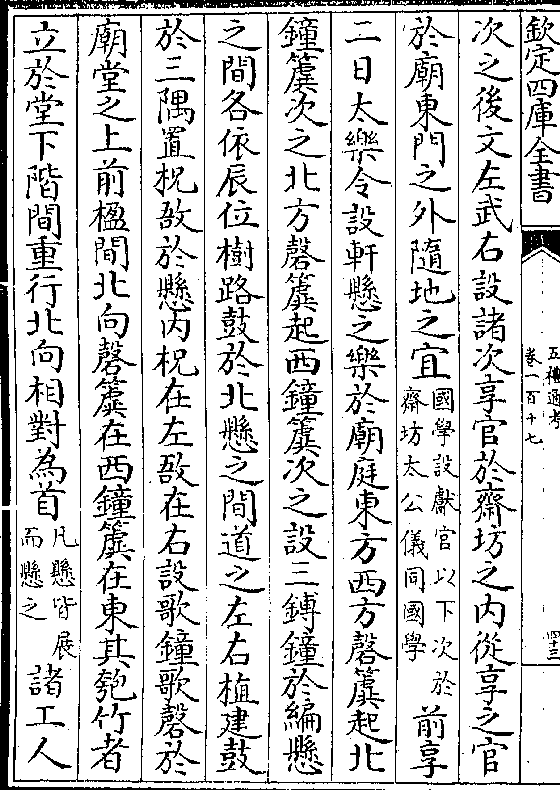 欽定四庫全書
五禮通考
卷一百十七
四十三
次之後文左武右設諸次享官於齋坊之內從享之官
於廟東門之外隨地之宜國學設獻官以下次於
齋坊太公儀同國學前享
二日太樂令設軒懸之樂於廟庭東方西方磬簴起北
鐘簴次之北方磬簴起西鐘簴次之設三鎛鐘於編懸
之間各依辰位樹路鼓於北懸之間道之左右植建鼓
於三隅置柷敔於懸内柷在左敔在右設歌鐘歌磬於
廟堂之上前楹間北向磬簴在西鐘簴在東其匏竹者
立於堂下階間重行北向相對為首凡懸皆展
而懸之諸工人